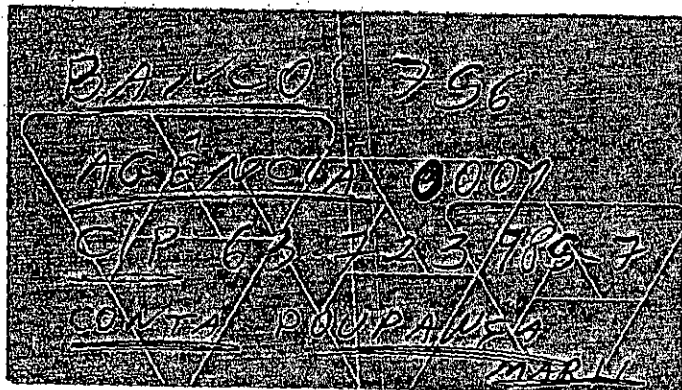 BANCO 756
AGENCIA 0001
C/P 63 723 985-7
CONTA POUPANÇA
MARLI